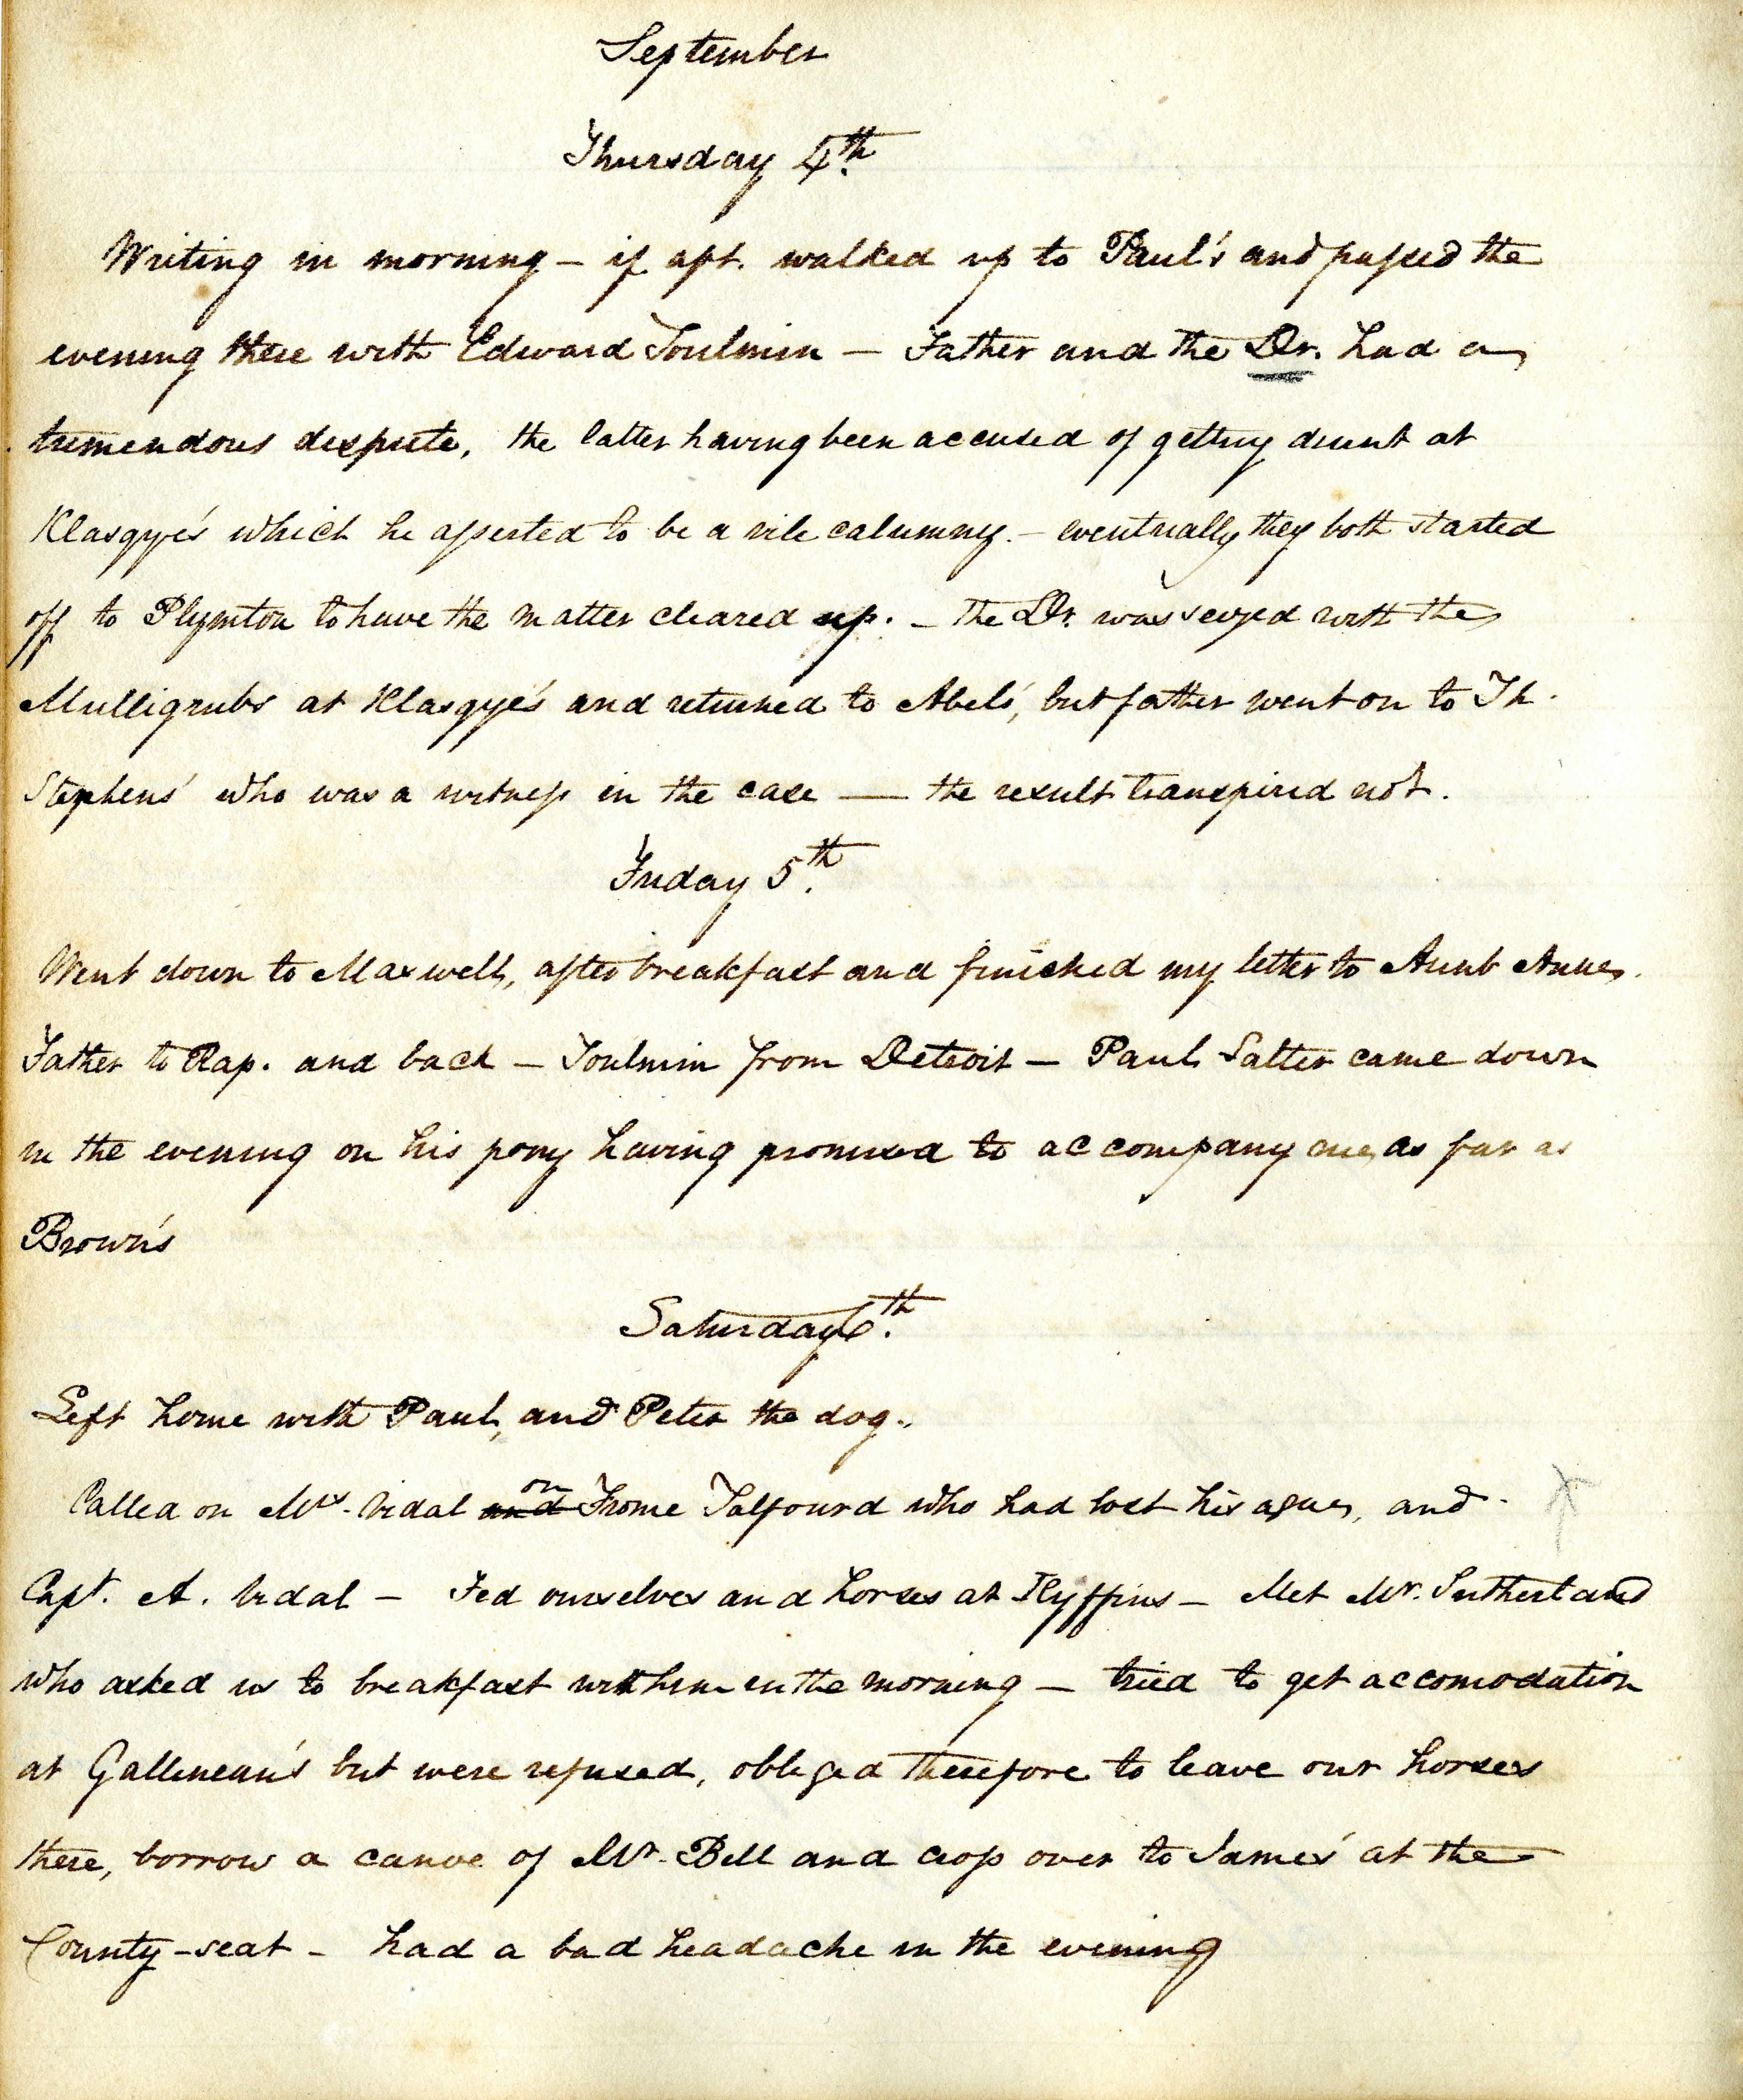 September
Thursday 4th.
Writing in morning – if aft. walked up to Paul's and passed the
evening there with Edward Toulmin – Father and the Dr. had a
tremendous dispute, the latter having been accused of getting drunk at
Klasgye's which he asserted to be a vile calumny. – eventually they both started
off to Plympton to have the matter cleared up. – the Dr. was seized with the
Mulligrubs at Klasgye's and returned to Abel's, but father went on to Th.
Stephens' who was a witness in the case — the result transpired not.
Friday 5th.
Went down to Maxwell, after breakfast and finished my letter to Aunt Anne.
Father to Rap. and back – Toulmin from Detroit – Paul Salter came down
in the evening on his pony having promised to accompany me as far as
Brown's
Saturday 6th.
Left home with Paul, and Peter the dog.
Called on Mrs. Vidal and on Frome Talfourd who had lost his ague, and
Capt. A. Vidal – Fed ourselves and horses at Kyffins – Met Mr. Sutherland
who asked us to breakfast with him in the morning – tried to get accomodation
at Gallineau's but were refused, obliged therefore to leave our horses
there, borrow a canoe of Mr. Bell and cross over to James' at the
County-seat – had a bad headache in the evening